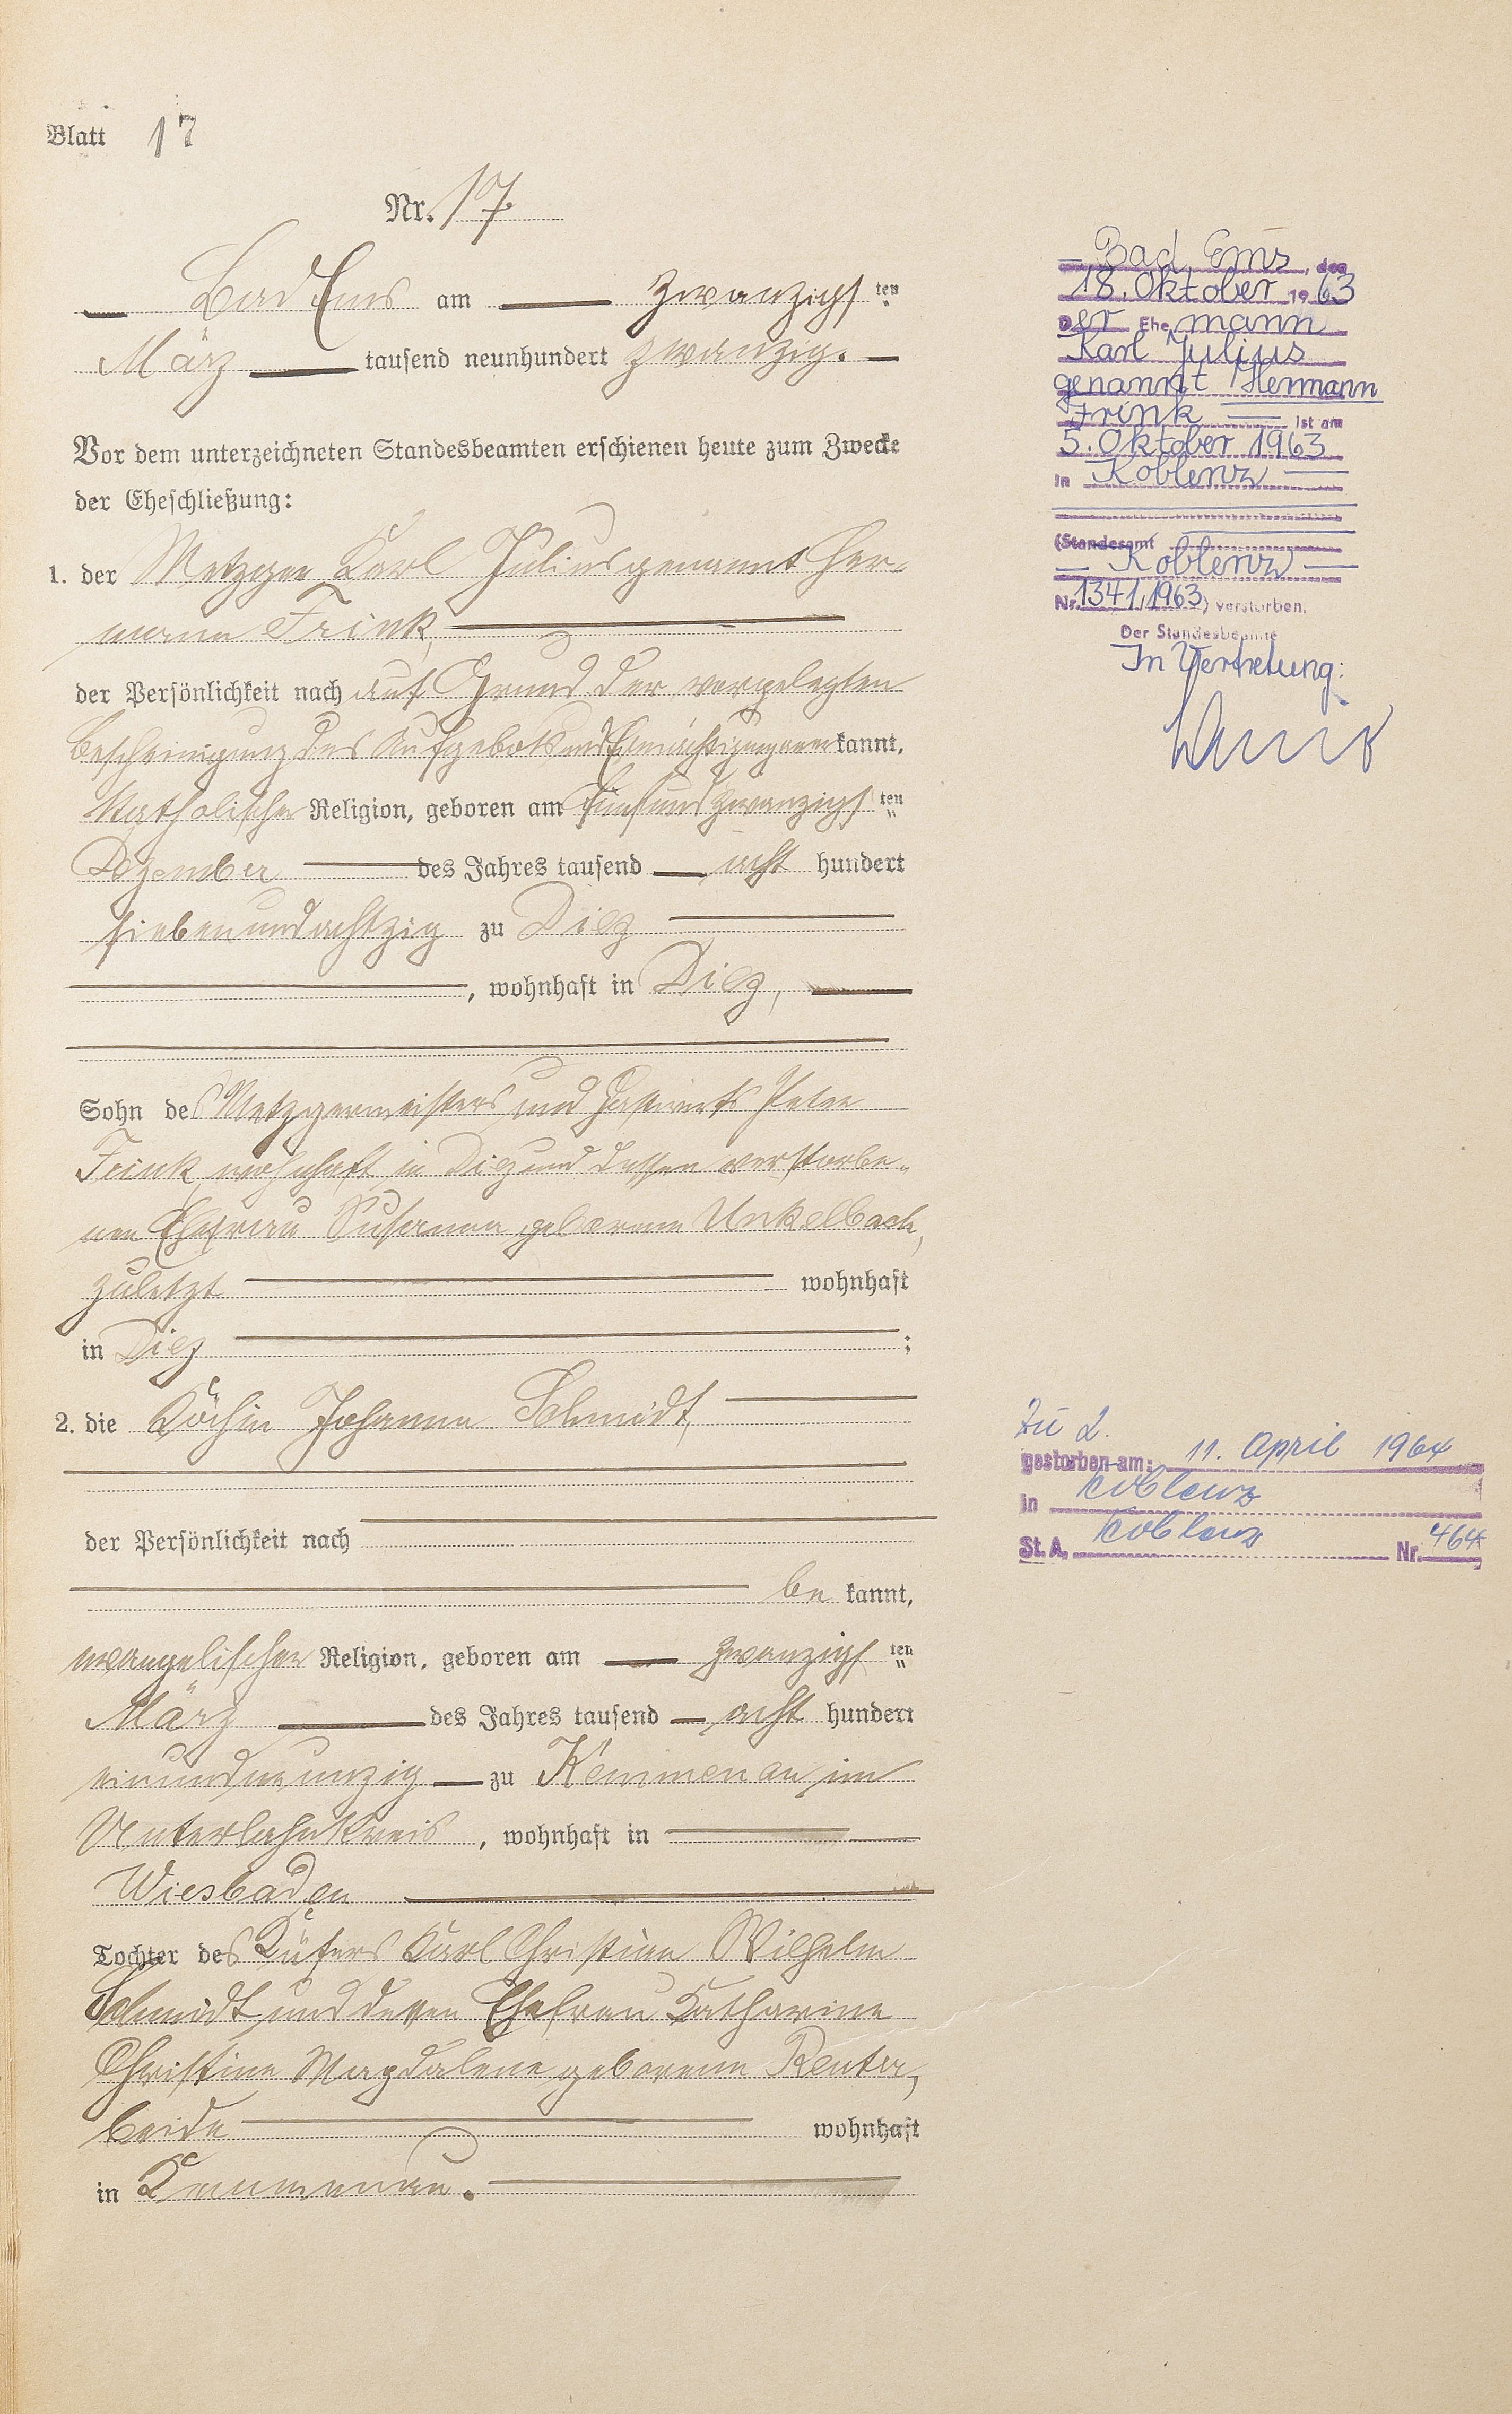 Blatt 17
Nr. 17
Bad Ems am zwanzigsten
März tausend neunhundert zwanzig.
Vor dem unterzeichneten Standesbeamten erschienen heute zum Zwecke
der Eheschließung:
1. der Metzger Karl Julius genannt Her-
mann Frink,
der Persönlichkeit nach auf Grund der vorgelegten
Bescheinigung des Aufgebots und Ermächtigung anerkannt,
katholischer Religion, geboren am fünfundzwanzigsten
Dezember des Jahres tausend acht hundert
siebenundachtzig zu Diez
, wohnhaft in Diez,
Sohn des Metzgermeisters und Gastwirts Peter
Frink, wohnhaft in Diez und dessen verstorbe-
nen Ehefrau Susanna geborenen Unkelbach,
zuletzt wohnhaft
in Diez ;
2. die Köchin Johanna Schmidt,
der Persönlichkeit nach
be kannt,
evangelischer Religion, geboren am zwanzigsten
März des Jahres tausend acht hundert
einundneunzig zu Kemmenau im
Unterlahnkreis , wohnhaft in
Wiesbaden
Tochter des Küfers Karl Christian Wilhelm
Schmidt und dessen Ehefrau Katharine
Christine Magdalene geborenen Reuter,
beide wohnhaft
in Kemmenau.
Bad Ems, den
18. Oktober 1963
Der Ehemann
Karl Julius
genannt Hermann
Frink ist am
5. Oktober 1963
in Koblenz
(Standesamt
Koblenz
Nr. 1341/1963) verstorben.
Der Standesbeamte
In Vertretung:
Zu 2.
gestorben am: 11. April 1964
in Koblenz
St. A. Koblenz Nr. 464